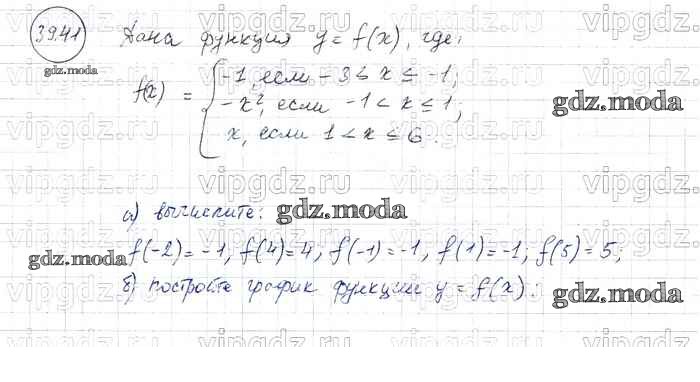 39.41 Дана функция y = f(x), где:
gdz.moda
f(x) = { -1, если -3 ≤ x ≤ -1;
-x², если -1 < x ≤ 1;
x, если 1 < x ≤ 6.
gdz.moda
а) вычислите:
gdz.moda
f(-2) = -1, f(4) = 4, f(-1) = -1, f(1) = -1; f(5) = 5;
gdz.moda
б) постройте график функции y = f(x):
gdz.moda
vipgdz.ru